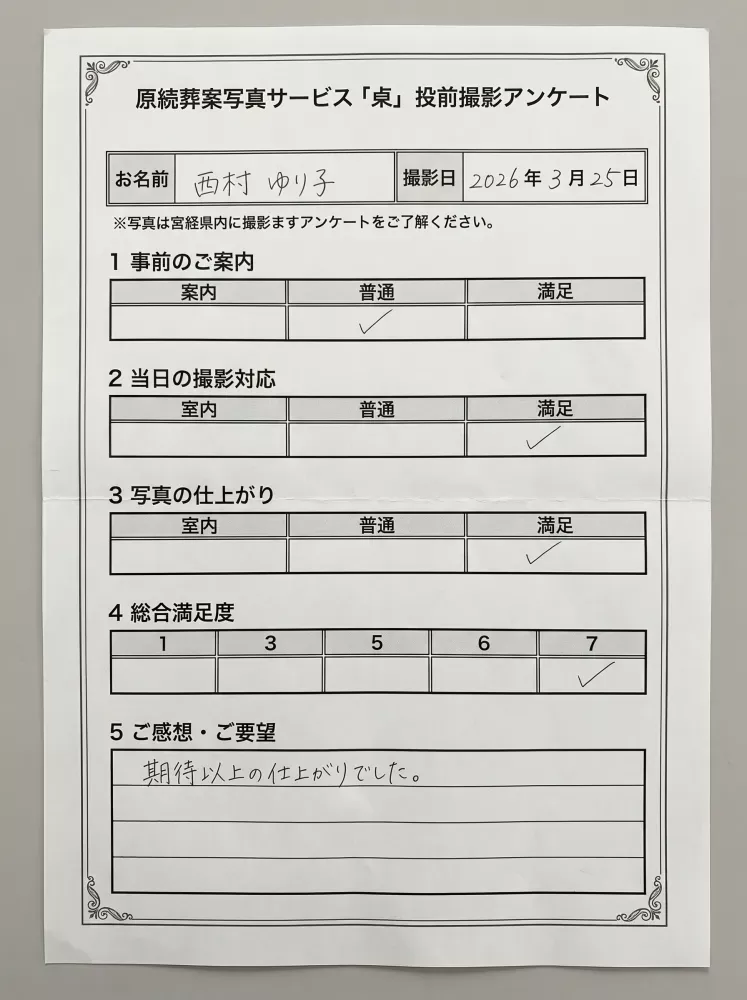 原続葬案写真サービス「桌」投前撮影アンケート
お名前 西村 ゆり子 撮影日 2026年3月25日
※写真は宮経県内に撮影ますアンケートをご了解ください。
1 事前のご案内
案内 普通 満足
✓
2 当日の撮影対応
室内 普通 満足
✓
3 写真の仕上がり
室内 普通 満足
✓
4 総合満足度
1 3 5 6 7
✓
5 ご感想・ご要望
期待以上の仕上がりでした。